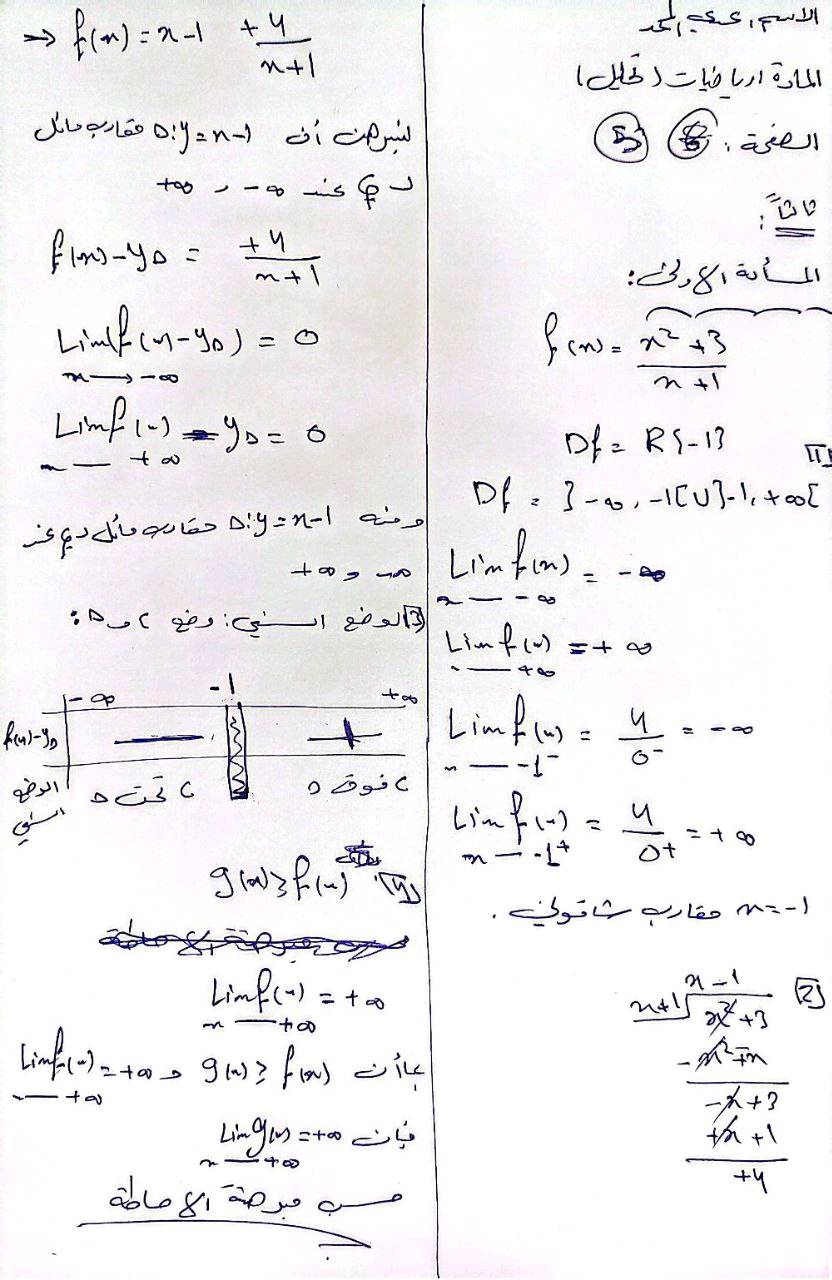 المادة: رياضيات (تحليل)
الصفحة: 5
ثالثاً:
المسألة الأولى:
f(x) = x² + 3 / x + 1
1) Df = R\{-1}
Df = ]-∞, -1[ U ]-1, +∞[
Lim f(x) = -∞
x → -∞
Lim f(x) = +∞
x → +∞
Lim f(x) = 4 / 0⁻ = -∞
x → -1⁻
Lim f(x) = 4 / 0+ = +∞
x → -1⁺
x = -1 مقارب شاقولي .
2)
x - 1
x+1 √ x² + 3
-x² - x
-x + 3
+x + 1
+4
=> f(x) = x - 1 + 4 / x + 1
لنبرهن أن D: y = x - 1 مقارب مائل
لـ C عند -∞ و +∞
f(x) - yD = +4 / x + 1
Lim(f(x) - yD) = 0
x → -∞
Lim f(x) - yD = 0
x → +∞
ومنه D: y = x - 1 مقارب مائل لـ C عند
-∞ و +∞
3) الوضع النسبي: وضع C و D:
-∞ -1 +∞
f(x) - yD - +
الوضع النسبي C تحت D C فوق D
4) g(x) ≥ f(x)
Lim f(x) = +∞
x → +∞
بما أن g(x) ≥ f(x) و Lim f(x) = +∞
x → +∞
فإن Lim g(x) = +∞
x → +∞
حسب مبرهنة الإحاطة